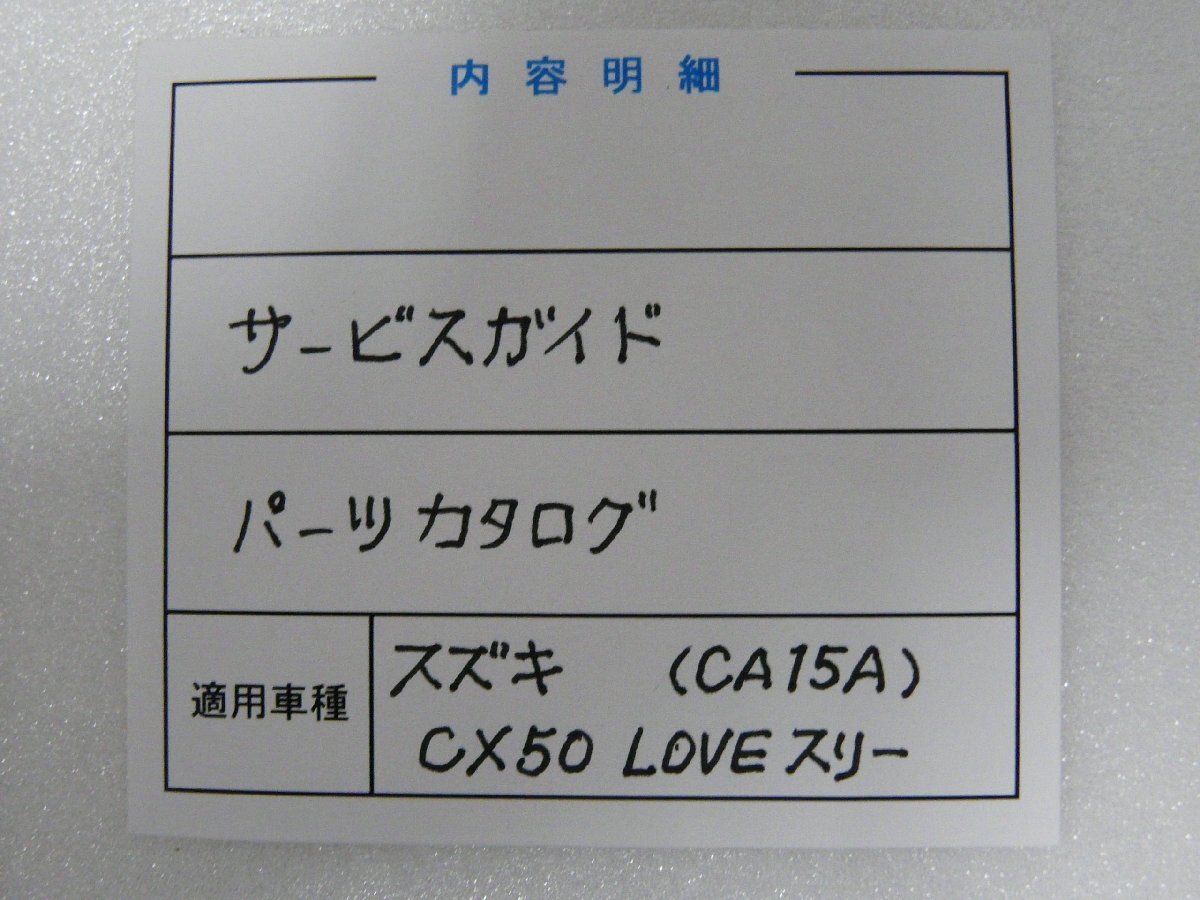 内容明細
サービスガイド
パーツカタログ
適用車種
スズキ (CA15A)
CX50 LOVEスリー